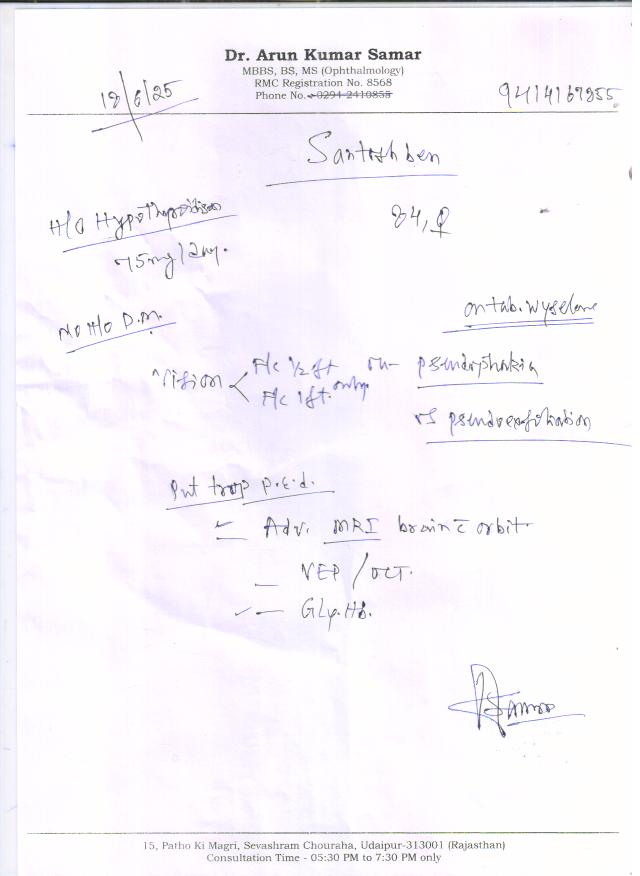 Dr. Arun Kumar Samar
MBBS, BS, MS (Ophthalmology)
RMC Registration No. 8568
Phone No. 0294-2410855
18/6/25
9414167955
Santosh ben
84, ♀
H/o Hypothyroidism
75mg/day.
No H/o D.M.
on tab. Wyselone
Vision < F/c 1/2 ft
F/c 1 ft. only.
pseudophakia
pseudoexfoliation
Adv. MRI brain c orbit
VEP / OCT.
Gly. Hb.
Samar
15, Patho Ki Magri, Sevashram Chouraha, Udaipur-313001 (Rajasthan)
Consultation Time - 05:30 PM to 7:30 PM only